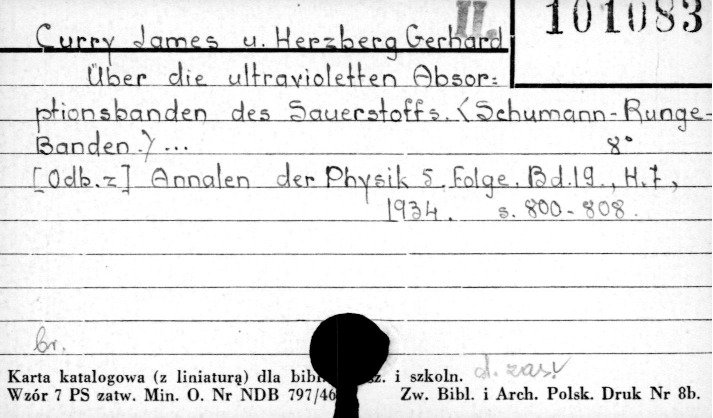 II. 101083
Curry James u. Herzberg Gerhard
Über die ultravioletten Absor=
ptionsbanden des Sauerstoffs. <Schumann-Runge-
Banden.> ... 8°
[Odb. z] Annalen der Physik 5. Folge, Bd.19., H.7,
1934. s. 800-808.
br.
d. zas.
Karta katalogowa (z liniaturą) dla bibl. sz. i szkoln.
Wzór 7 PS zatw. Min. O. Nr NDB 797/46 Zw. Bibl. i Arch. Polsk. Druk Nr 8b.